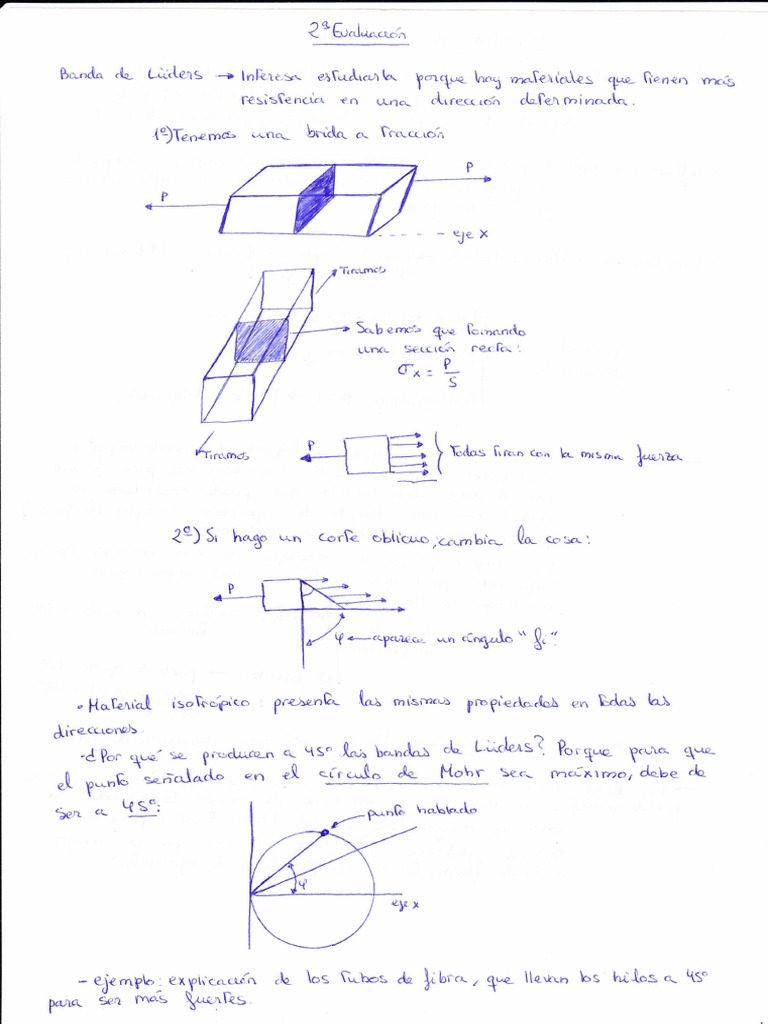 2ª Evaluación
Banda de Lüders → Interesa estudiarla porque hay materiales que tienen más
resistencia en una dirección determinada.
1º) Tenemos una brida a tracción
P
P
eje x
Tiramos
Sabemos que tomando
una sección recta:
σx = P/S
Tiramos
P
Todas tiran con la misma fuerza
2º) Si hago un corte oblicuo, cambia la cosa:
P
φ ← aparece un ángulo "fi".
• Material isotrópico: presenta las mismas propiedades en todas las
direcciones.
• ¿Por qué se producen a 45º las bandas de Lüders? Porque para que
el punto señalado en el círculo de Mohr sea máximo, debe de
ser a 45º:
punto hablado
φ
eje x
- ejemplo: explicación de los tubos de fibra, que llevan los hilos a 45º
para ser más fuertes.